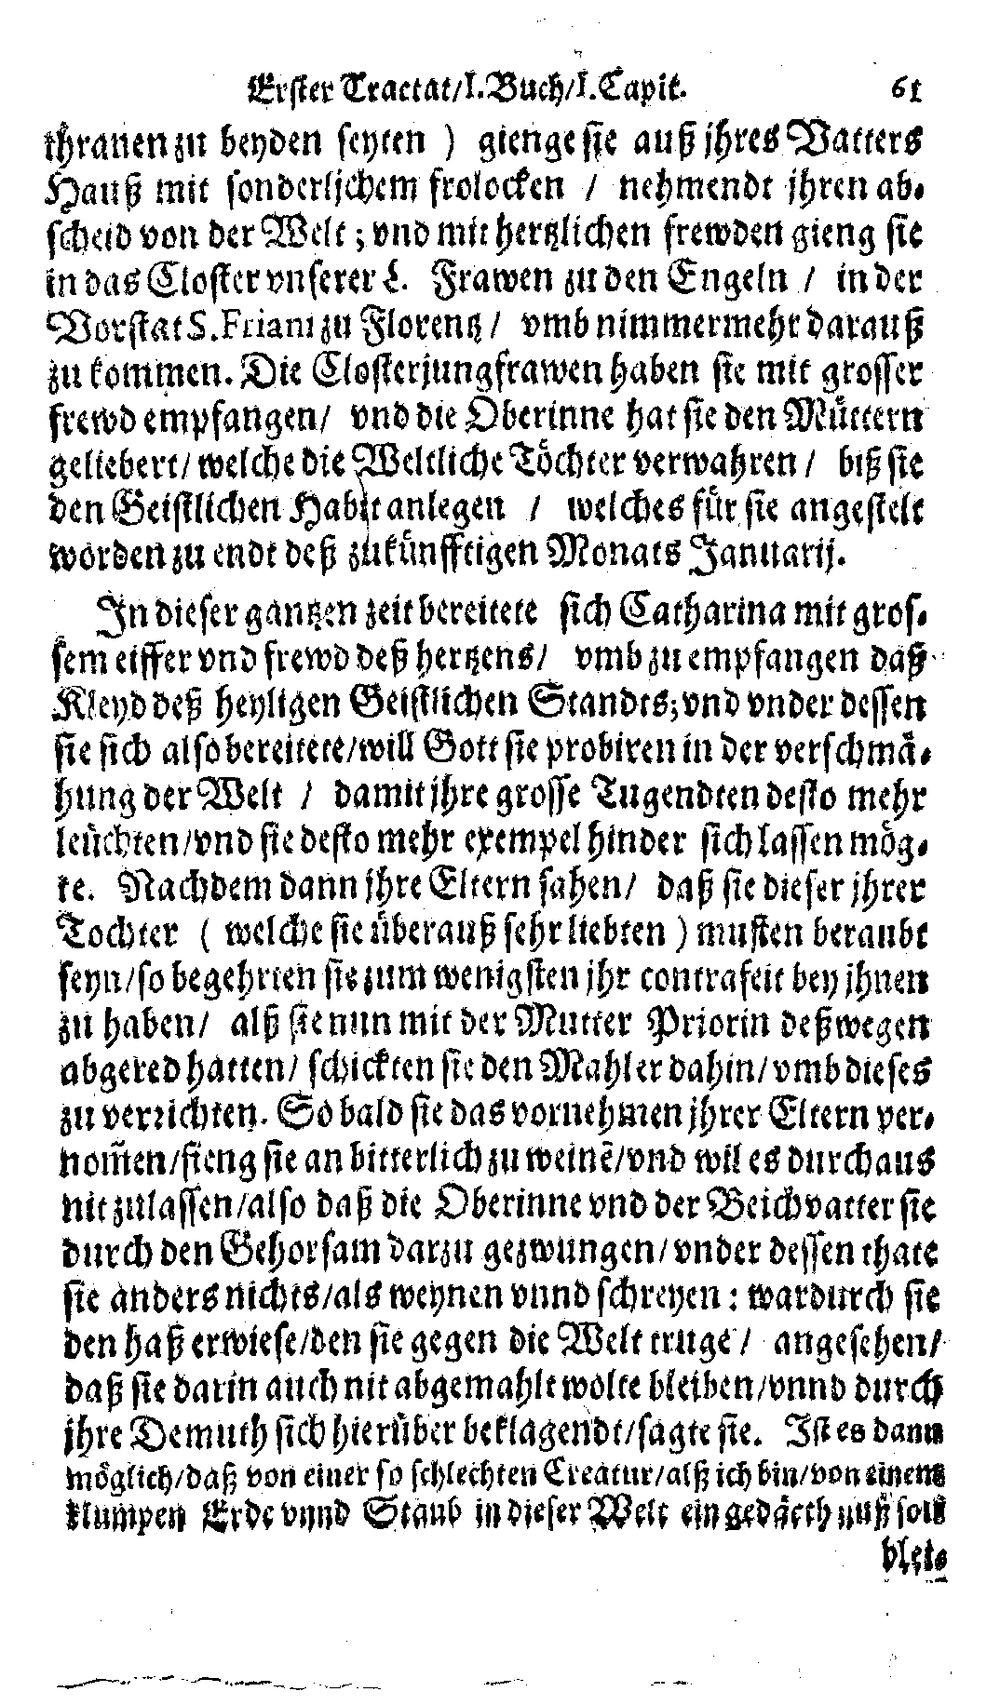 Erster Tractat/I. Buch/I. Capit. 61
thranen zu beyden seyten ) gienge sie auß jhres Vatters
Hauß mit sonderlichem frolocken / nehmendt jhren ab-
scheid von der Welt; vnd mit hertzlichen frewden gieng sie
in das Closter vnserer L. Frawen zu den Engeln / in der
Vorstat S. Friani zu Florentz / vmb nimmermehr darauß
zu kommen. Die Closterjungfrawen haben sie mit grosser
frewd empfangen/ vnd die Oberinne hat sie den Müttern
geliebert/ welche die Weltliche Töchter verwahren / biß sie
den Geistlichen Habit anlegen / welches für sie angestelt
worden zu endt deß zukünfftigen Monats Januarij.
In dieser gantzen zeit bereitete sich Catharina mit gros-
sem eiffer vnd frewd deß hertzens/ vmb zu empfangen daß
Kleyd deß heyligen Geistlichen Standts; vnd vnder dessen
sie sich also bereitete/will Gott sie probiren in der verschmä-
hung der Welt / damit jhre grosse Tugendten desto mehr
leüchten/vnd sie desto mehr exempel hinder sich lassen mög-
te. Nachdem dann jhre Eltern sahen/ daß sie dieser jhrer
Tochter ( welche sie überauß sehr liebten ) musten beraubt
seyn/so begehrten sie zum wenigsten jhr contrafeit bey jhnen
zu haben/ alß sie nun mit der Mutter Priorin deßwegen
abgered hatten/ schickten sie den Mahler dahin/ vmb dieses
zu verrichten. So bald sie das vornehmen jhrer Eltern ver-
nom̃en/fieng sie an bitterlich zu weinẽ/vnd wil es durchaus
nit zulassen/also daß die Oberinne vnd der Beichvatter sie
durch den Gehorsam darzu gezwungen/ vnder dessen thate
sie anders nichts/als weynen vnnd schreyen: wardurch sie
den haß erwiese/den sie gegen die Welt truge / angesehen/
daß sie darin auch nit abgemahlt wolte bleiben/vnnd durch
jhre Demuth sich hierüber beklagendt/sagte sie. Ist es dann
möglich/daß von einer so schlechten Creatur/alß ich bin/von einem
klumpen Erde vnnd Staub in dieser Welt ein gedächtnuß soll
blei-